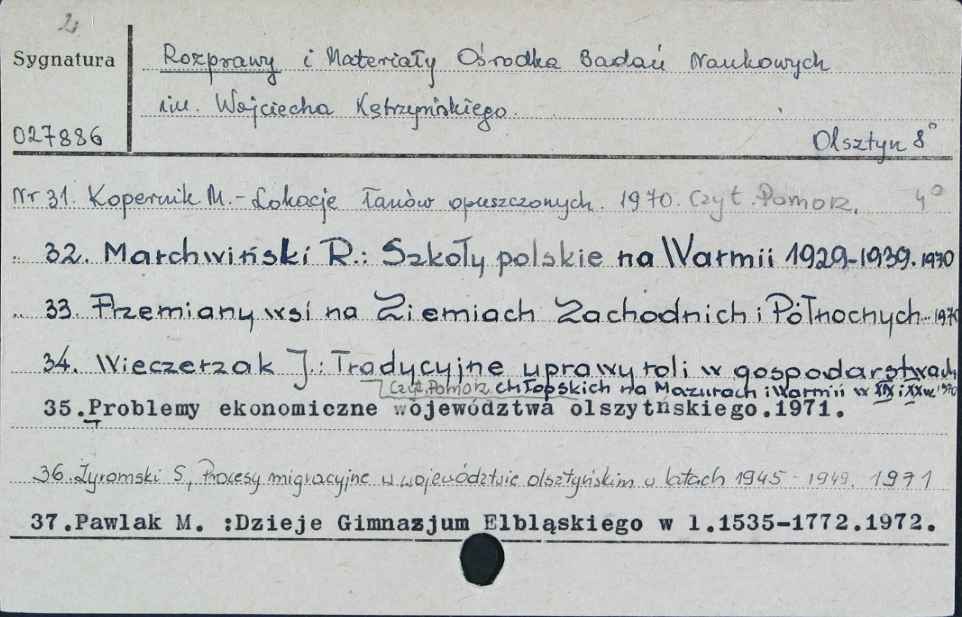 2
Sygnatura
027886
Rozprawy i Materiały Ośrodka Badań Naukowych
im. Wojciecha Kętrzyńskiego.
Olsztyn 8°
Nr 31. Kopernik M. - Lokacje łanów opuszczonych. 1970. Czyt. Pomorz. 4°
„ 32. Marchwiński R.: Szkoły polskie na Warmii 1929-1939. 1970
„ 33. Przemiany wsi na Ziemiach Zachodnich i Północnych.- 1970
34. Wieczerzak J.: Tradycyjne uprawy roli w gospodarstwach
Czyt. Pomorz chłopskich na Mazurach i Warmii w XIX i XX w. 1970
35. Problemy ekonomiczne województwa olszytńskiego.1971.
36. Żyromski S, Procesy migracyjne w województwie olsztyńskim w latach 1945 - 1949. 1971
37.Pawlak M. :Dzieje Gimnazjum Elbląskiego w l.1535-1772.1972.